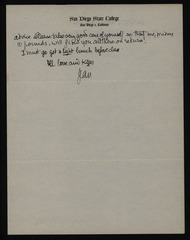 San Diego State College
San Diego 5, California
advice Please take very good care of yourself so that me, minus
10 pounds, will find you all there on return!
I must go get a light lunch before class
All love and kisses
Jean